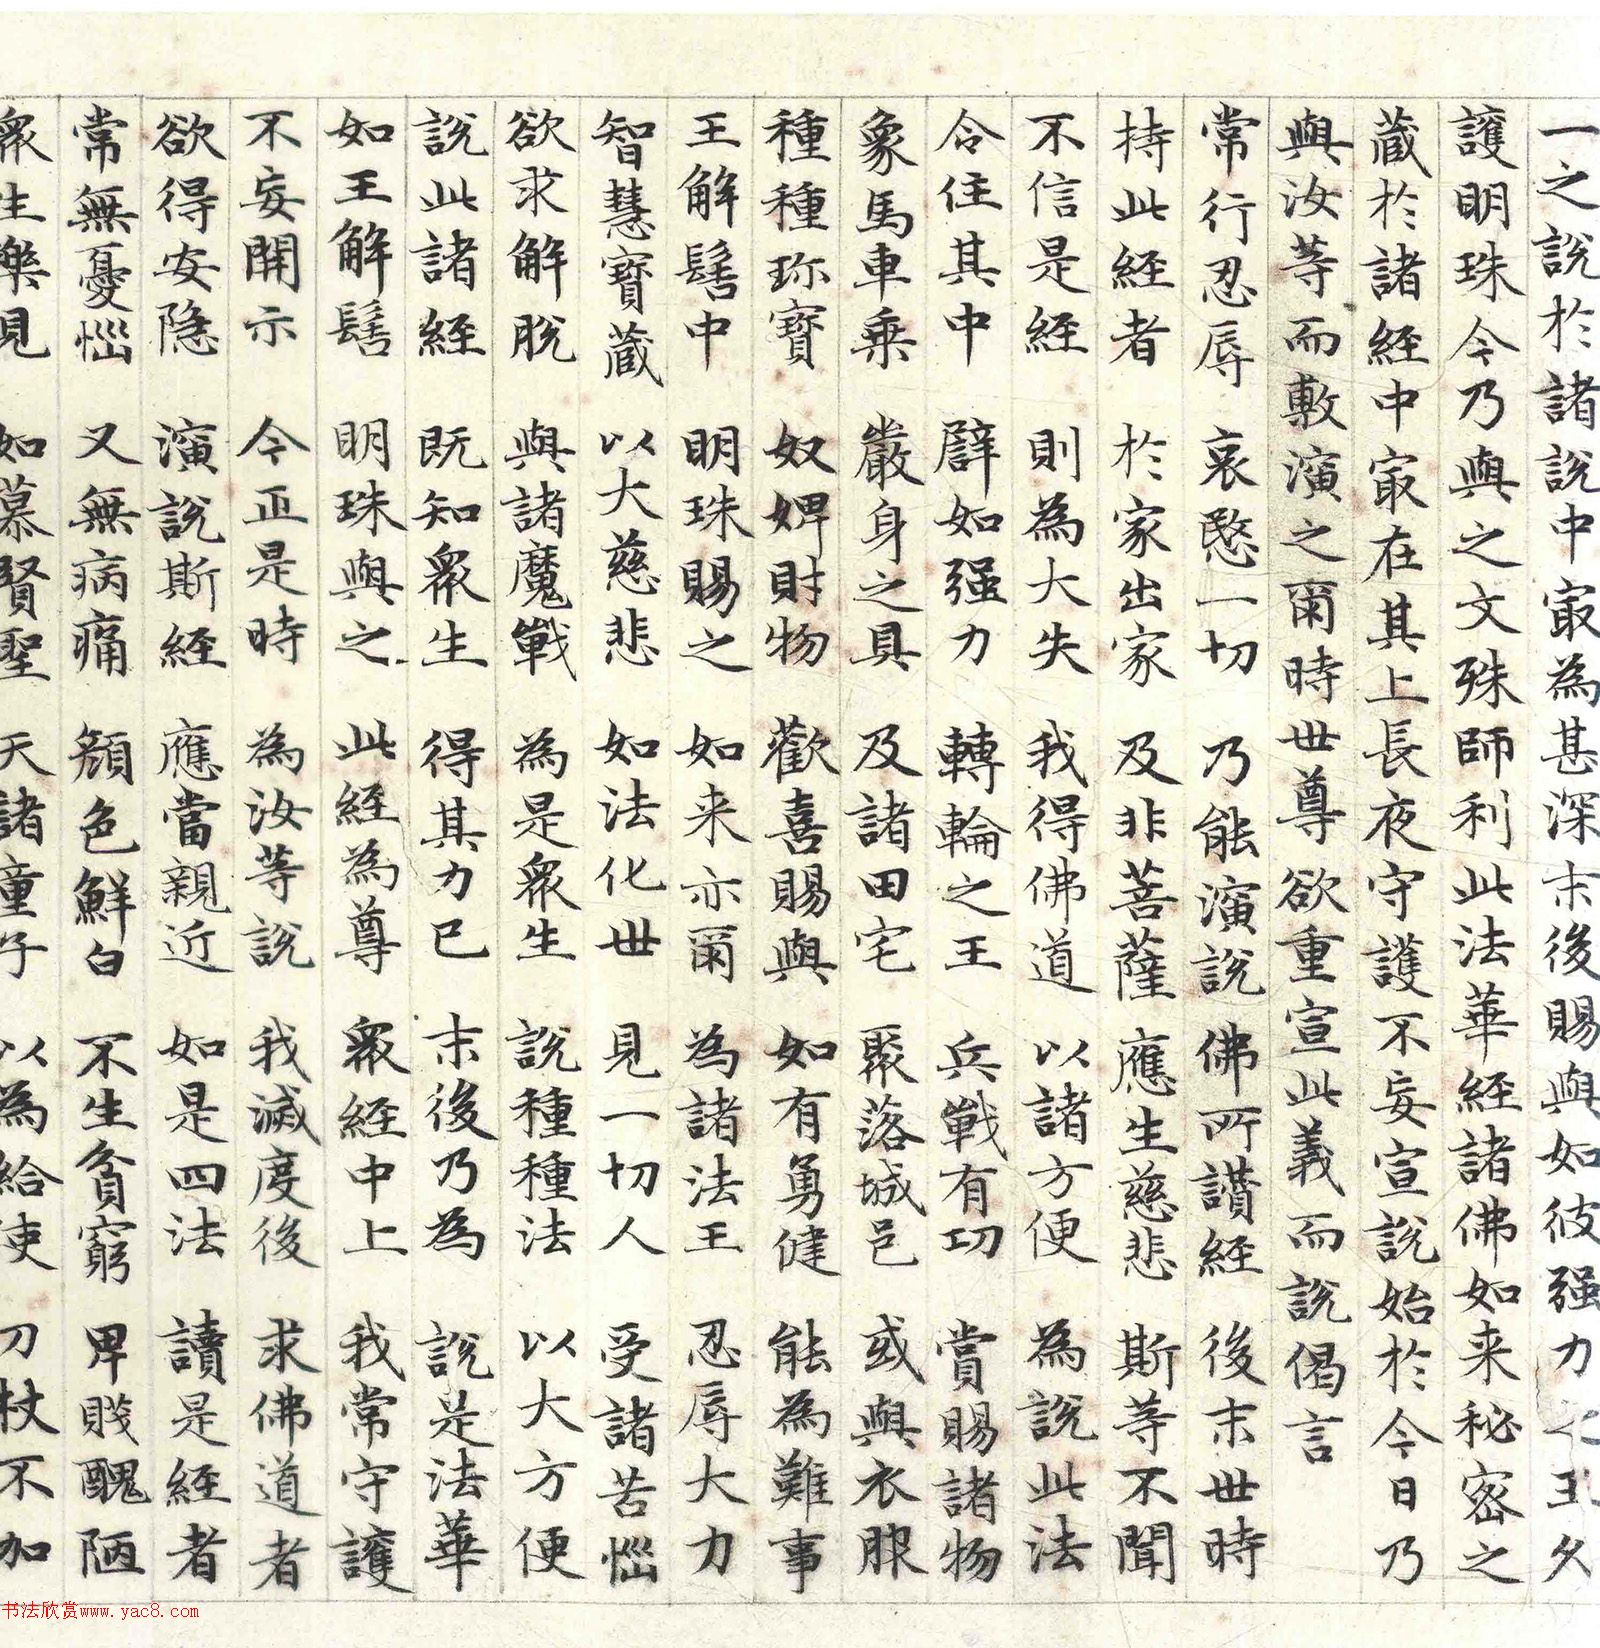 一之說於諸說中㝡為甚深末後賜與如彼强力之王久
護明珠今乃與之文殊師利此法華經諸佛如来秘密之
藏於諸經中㝡在其上長夜守護不妄宣說始於今日乃
與汝等而敷演之爾時世尊欲重宣此義而說偈言
常行忍辱 哀愍一切 乃能演說 佛所讃經 後末世時
持此經者 於家出家 及非菩薩 應生慈悲 斯等不聞
不信是經 則為大失 我得佛道 以諸方便 為說此法
令住其中 譬如强力 轉輪之王 兵戰有功 賞賜諸物
象馬車乗 嚴身之具 及諸田宅 聚落城邑 或與衣服
種種珎寶 奴婢財物 歡喜賜與 如有勇健 能為難事
王解髻中 明珠賜之 如来亦爾 為諸法王 忍辱大力
智慧寶藏 以大慈悲 如法化世 見一切人 受諸苦惱
欲求解脫 與諸魔戰 為是衆生 說種種法 以大方便
說此諸經 既知衆生 得其力已 末後乃為 說是法華
如王解髻 明珠與之 此經為尊 衆經中上 我常守護
不妄開示 今正是時 為汝等說 我滅度後 求佛道者
欲得安隐 演說斯經 應當親近 如是四法 讀是經者
常無憂惱 又無病痛 顏色鮮白 不生貧窮 卑賤醜陋
衆生樂見 如慕賢聖 天諸童子 以為給使 刀杖不加
书法欣赏www.yac8.com